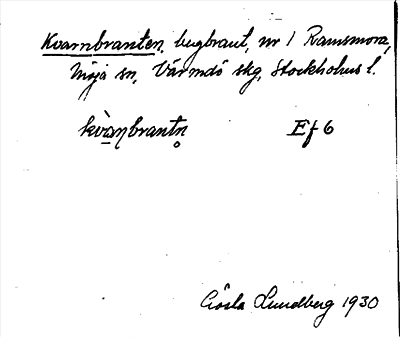 Kvarnbranten, bugbrant, nr 1 Ramsmora,
Möja sn, Värmdö skg, Stockholms l.
kvà̱ηbrantn̥ Ef 6
Gösta Lundberg 1930